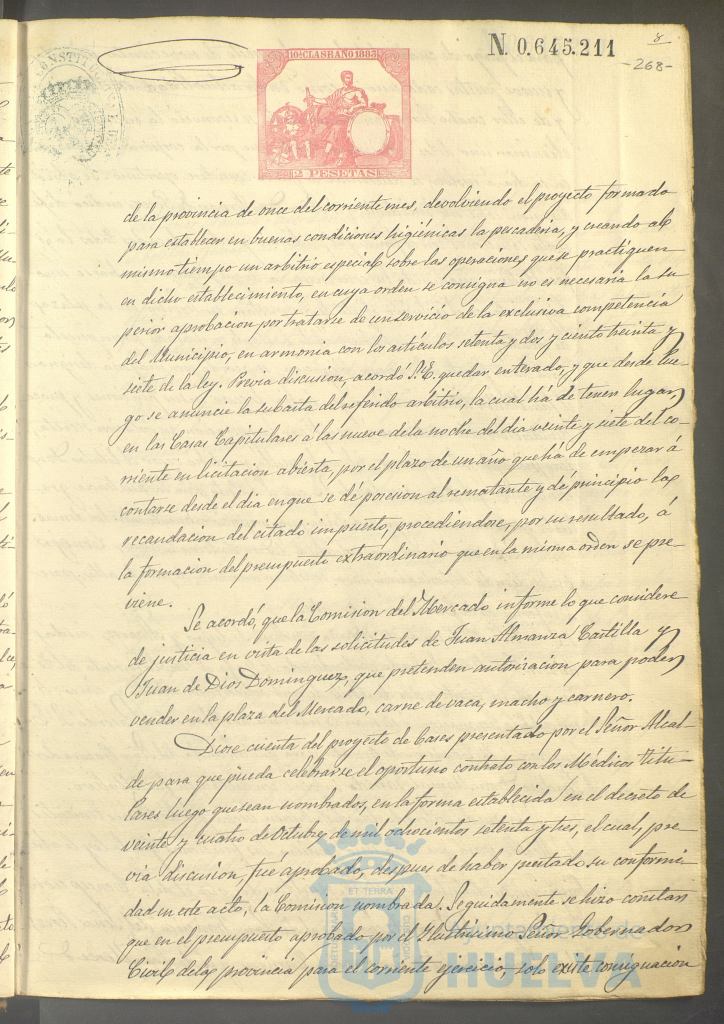 10ª CLASE AÑO 1883
2 PESETAS
N. 0.645.211
8
-268-
CONSTITU
de la provincia de once del corriente mes, devolviendo el proyecto formado
para establecer en buenas condiciones higiénicas la pescaderia, y creando al
mismo tiempo un arbitrio especial sobre las operaciones que se practiquen
en dicho establecimiento, en cuya orden se consigna no es necesaria la su
perior aprobacion por tratarse de un servicio de la exclusiva competencia
del Municipio, en armonia con los articulos setenta y dos y ciento treinta y
siete de la ley. Previa discusion, acordó S.E. quedar enterado, y que desde lue
go se anuncie la subasta del referido arbitrio, la cual ha de tener lugar
en las Casas Capitulares á las nueve de la noche del dia veinte y siete del co-
rriente en licitacion abierta, por el plazo de un año que há de empezar á
contarse desde el dia en que se dé posesion al rematante y dé principio la
recaudacion del citado impuesto, procediendose, por su resultado, á
la formacion del presupuesto extraordinario que en la misma orden se pre-
viene.
Se acordó, que la Comision del Mercado informe lo que considere
de justicia en vista de las solicitudes de Juan Almanza Castilla y
Juan de Dios Dominguez, que pretenden autorizacion para poder
vender en la plaza del Mercado, carne de vaca, macho y carnero.
Diose cuenta del proyecto de bases presentado por el Señor Alcal-
de para que pueda celebrarse el oportuno contrato con los Médicos titu-
lares luego que sean nombrados, en la forma establecida en el decreto de
veinte y cuatro de Octubre de mil ochocientos setenta y tres, el cual, pre-
via discusion fué aprobado, despues de haber prestado su conformi
dad en este acto, la Comision nombrada. Seguidamente se hizo constar
que en el presupuesto aprobado por el Ilustrisimo Señor Gobernador
Civil de la provincia para el corriente ejercicio, solo existe consignacion
ET TERRA
Ayuntamiento de
HUELVA